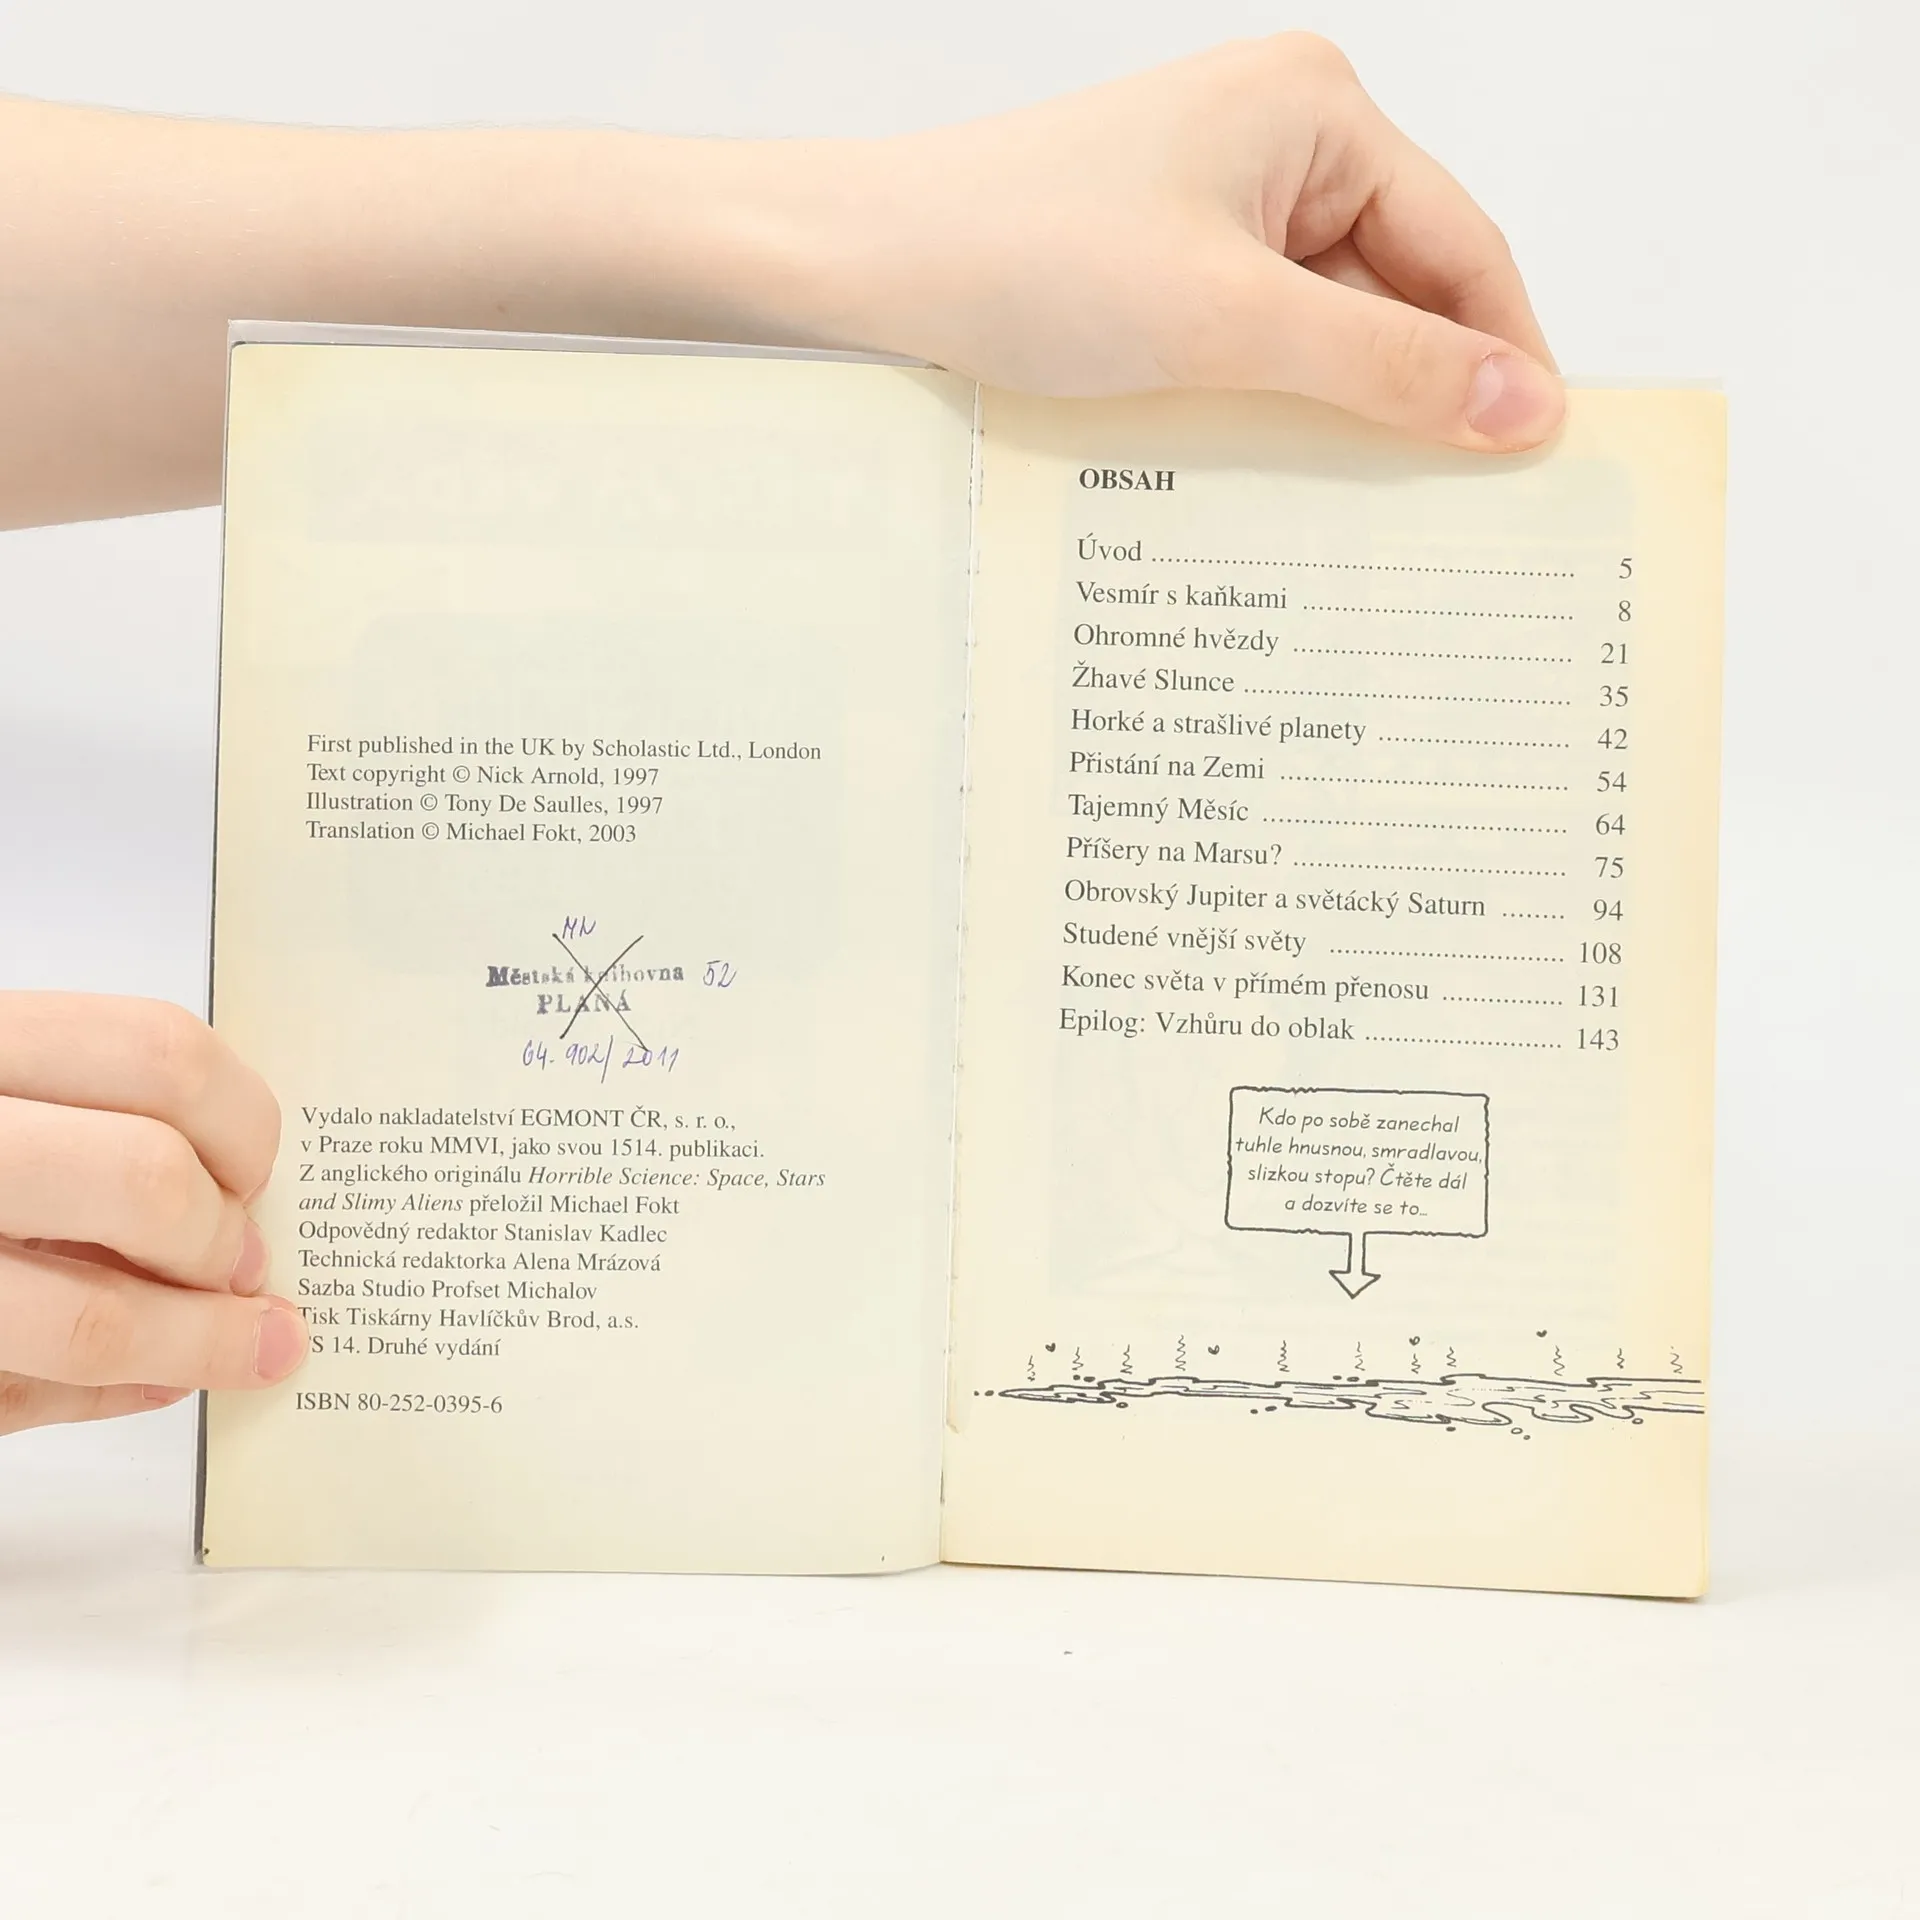 First published in the UK by Scholastic Ltd., London
Text copyright © Nick Arnold, 1997
Illustration © Tony De Saulles, 1997
Translation © Michael Fokt, 2003
MN
Městská knihovna 52
PLANÁ
64. 902/2011
Vydalo nakladatelství EGMONT ČR, s. r. o.,
v Praze roku MMVI, jako svou 1514. publikaci.
Z anglického originálu Horrible Science: Space, Stars
and Slimy Aliens přeložil Michael Fokt
Odpovědný redaktor Stanislav Kadlec
Technická redaktorka Alena Mrázová
Sazba Studio Profset Michalov
Tisk Tiskárny Havlíčkův Brod, a.s.
14. Druhé vydání
ISBN 80-252-0395-6
OBSAH
Úvod ........ 5
Vesmír s kaňkami ........ 8
Ohromné hvězdy ........ 21
Žhavé Slunce ........ 35
Horké a strašlivé planety ........ 42
Přistání na Zemi ........ 54
Tajemný Měsíc ........ 64
Příšery na Marsu? ........ 75
Obrovský Jupiter a světácký Saturn ........ 94
Studené vnější světy ........ 108
Konec světa v přímém přenosu ........ 131
Epilog: Vzhůru do oblak ........ 143
Kdo po sobě zanechal
tuhle hnusnou, smradlavou,
slizkou stopu? Čtěte dál
a dozvíte se to...